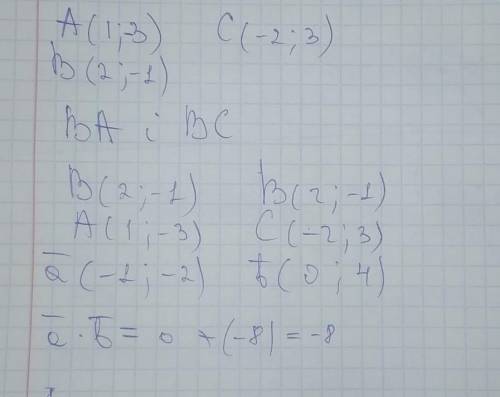 A(1;-3) C(-2;3)
B(2;-1)
BA i BC
B(2;-1) B(2;-1)
A(1;-3) C(-2;3)
a̅(-1;-2) b̅(0;4)
a̅·b̅= 0 +(-8)=-8